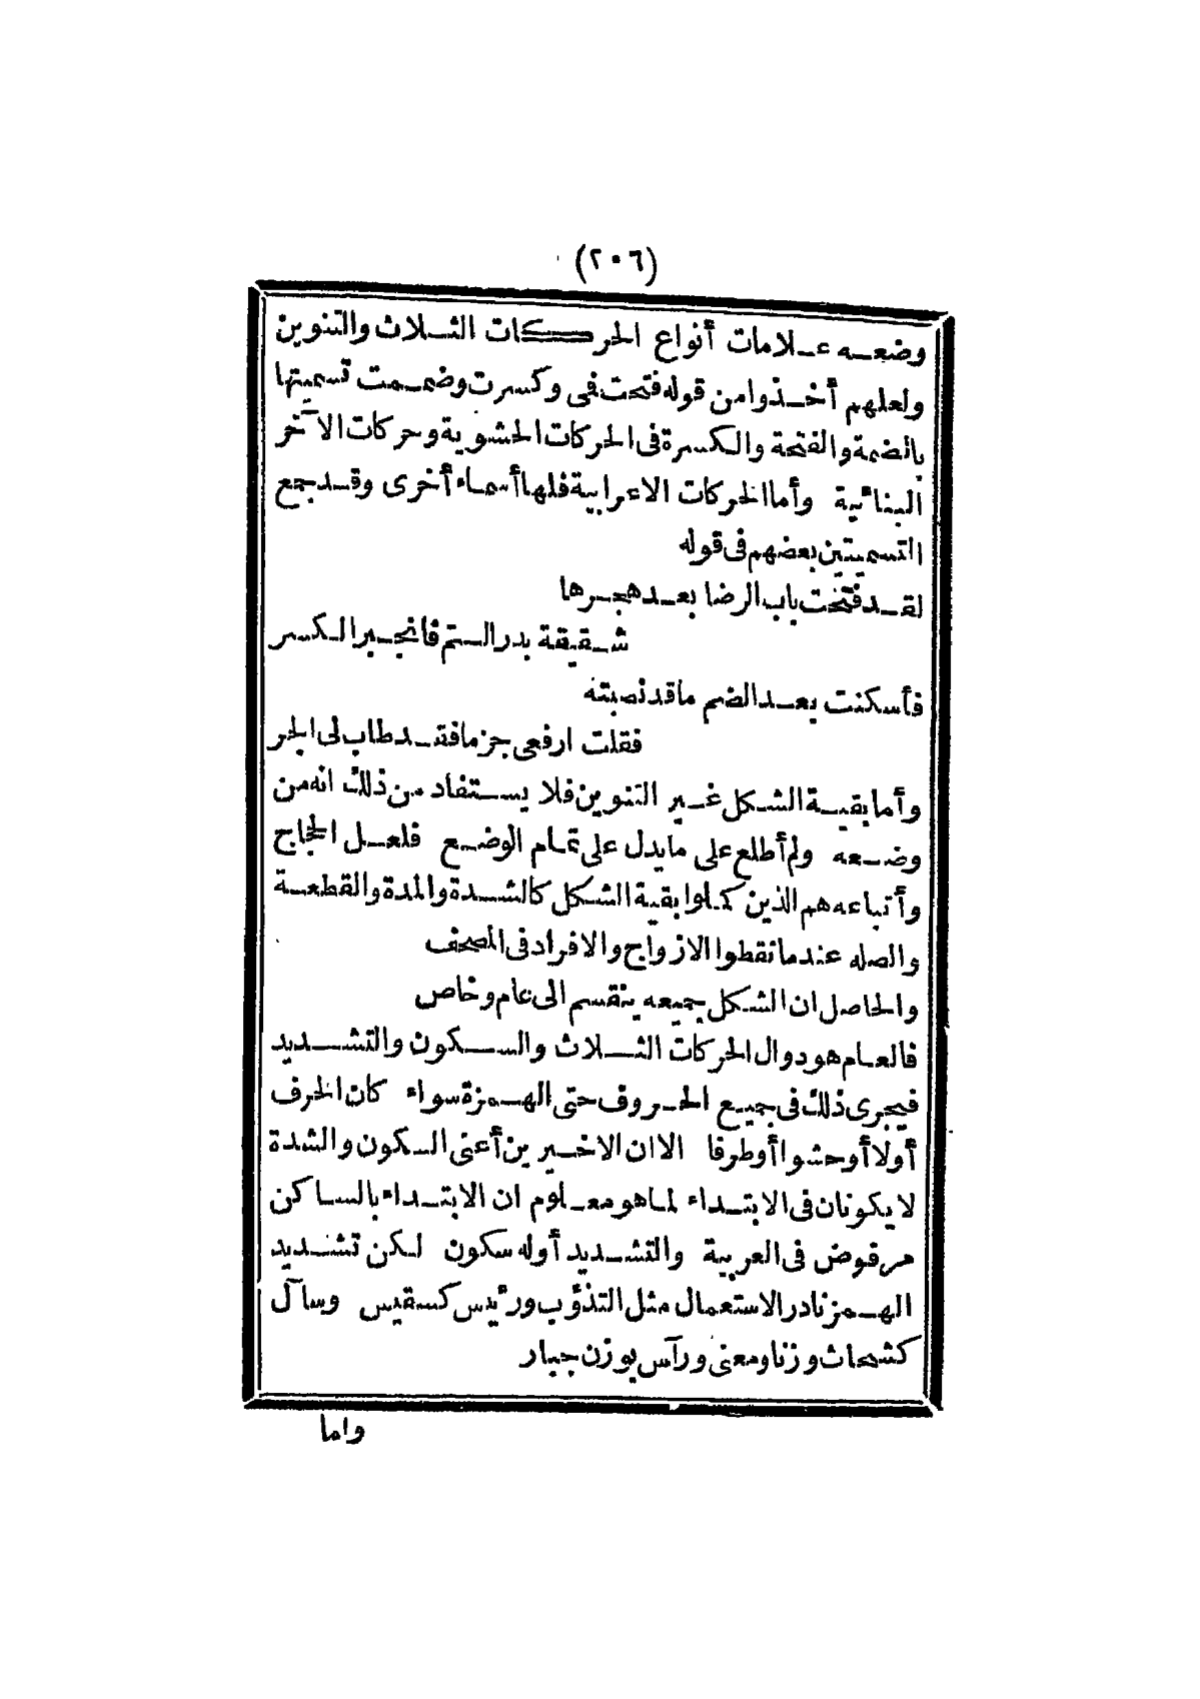 (٢٠٦)
وضعه علامات أنواع الحركات الثلاث والتنوين
ولعلهم أخذوا من قوله فتحت فى وكسرت وضممت تسميتها
بالضمة والفتحة والكسرة فى الحركات الحشوية وحركات الآخر
البنائية وأما الحركات الاعرابية فلها أسماء أخرى وقد جمع
التسميتين بعضهم فى قوله
لقد فتحت باب الرضا بعد هجرها
شقيقة بدر التم فانجبر الكسر
فأسكنت بعد الضم ما قد نصبته
فقلت ارفعى جزما فقد طاب لى الجر
وأما بقية الشكل غير التنوين فلا يستفاد من ذلك انه من
وضعه ولم أطلع على ما يدل على تمام الوضع فلعل الحجاج
وأتباعه هم الذين كملوا بقية الشكل كالشدة والمدة والقطعة
والصله عندما نقطوا الازواج والافراد فى المصحف
والحاصل ان الشكل جميعه ينقسم الى عام وخاص
فالعام هو دوال الحركات الثلاث والسكون والتشديد
فيجرى ذلك فى جميع الحروف حتى الهمزة سواء كان الحرف
أولا أو حشوا أو طرفا الا ان الاخيرين أعنى السكون والشدة
لا يكونان فى الابتداء لما هو معلوم ان الابتداء بالساكن
مرفوض فى العربية والتشديد أوله سكون لكن تشديد
الهمز نادر الاستعمال مثل التذؤب ورئيس كسقيس وسآل
كشحاث وزنا ومعنى ورآس بوزن جبار
واما